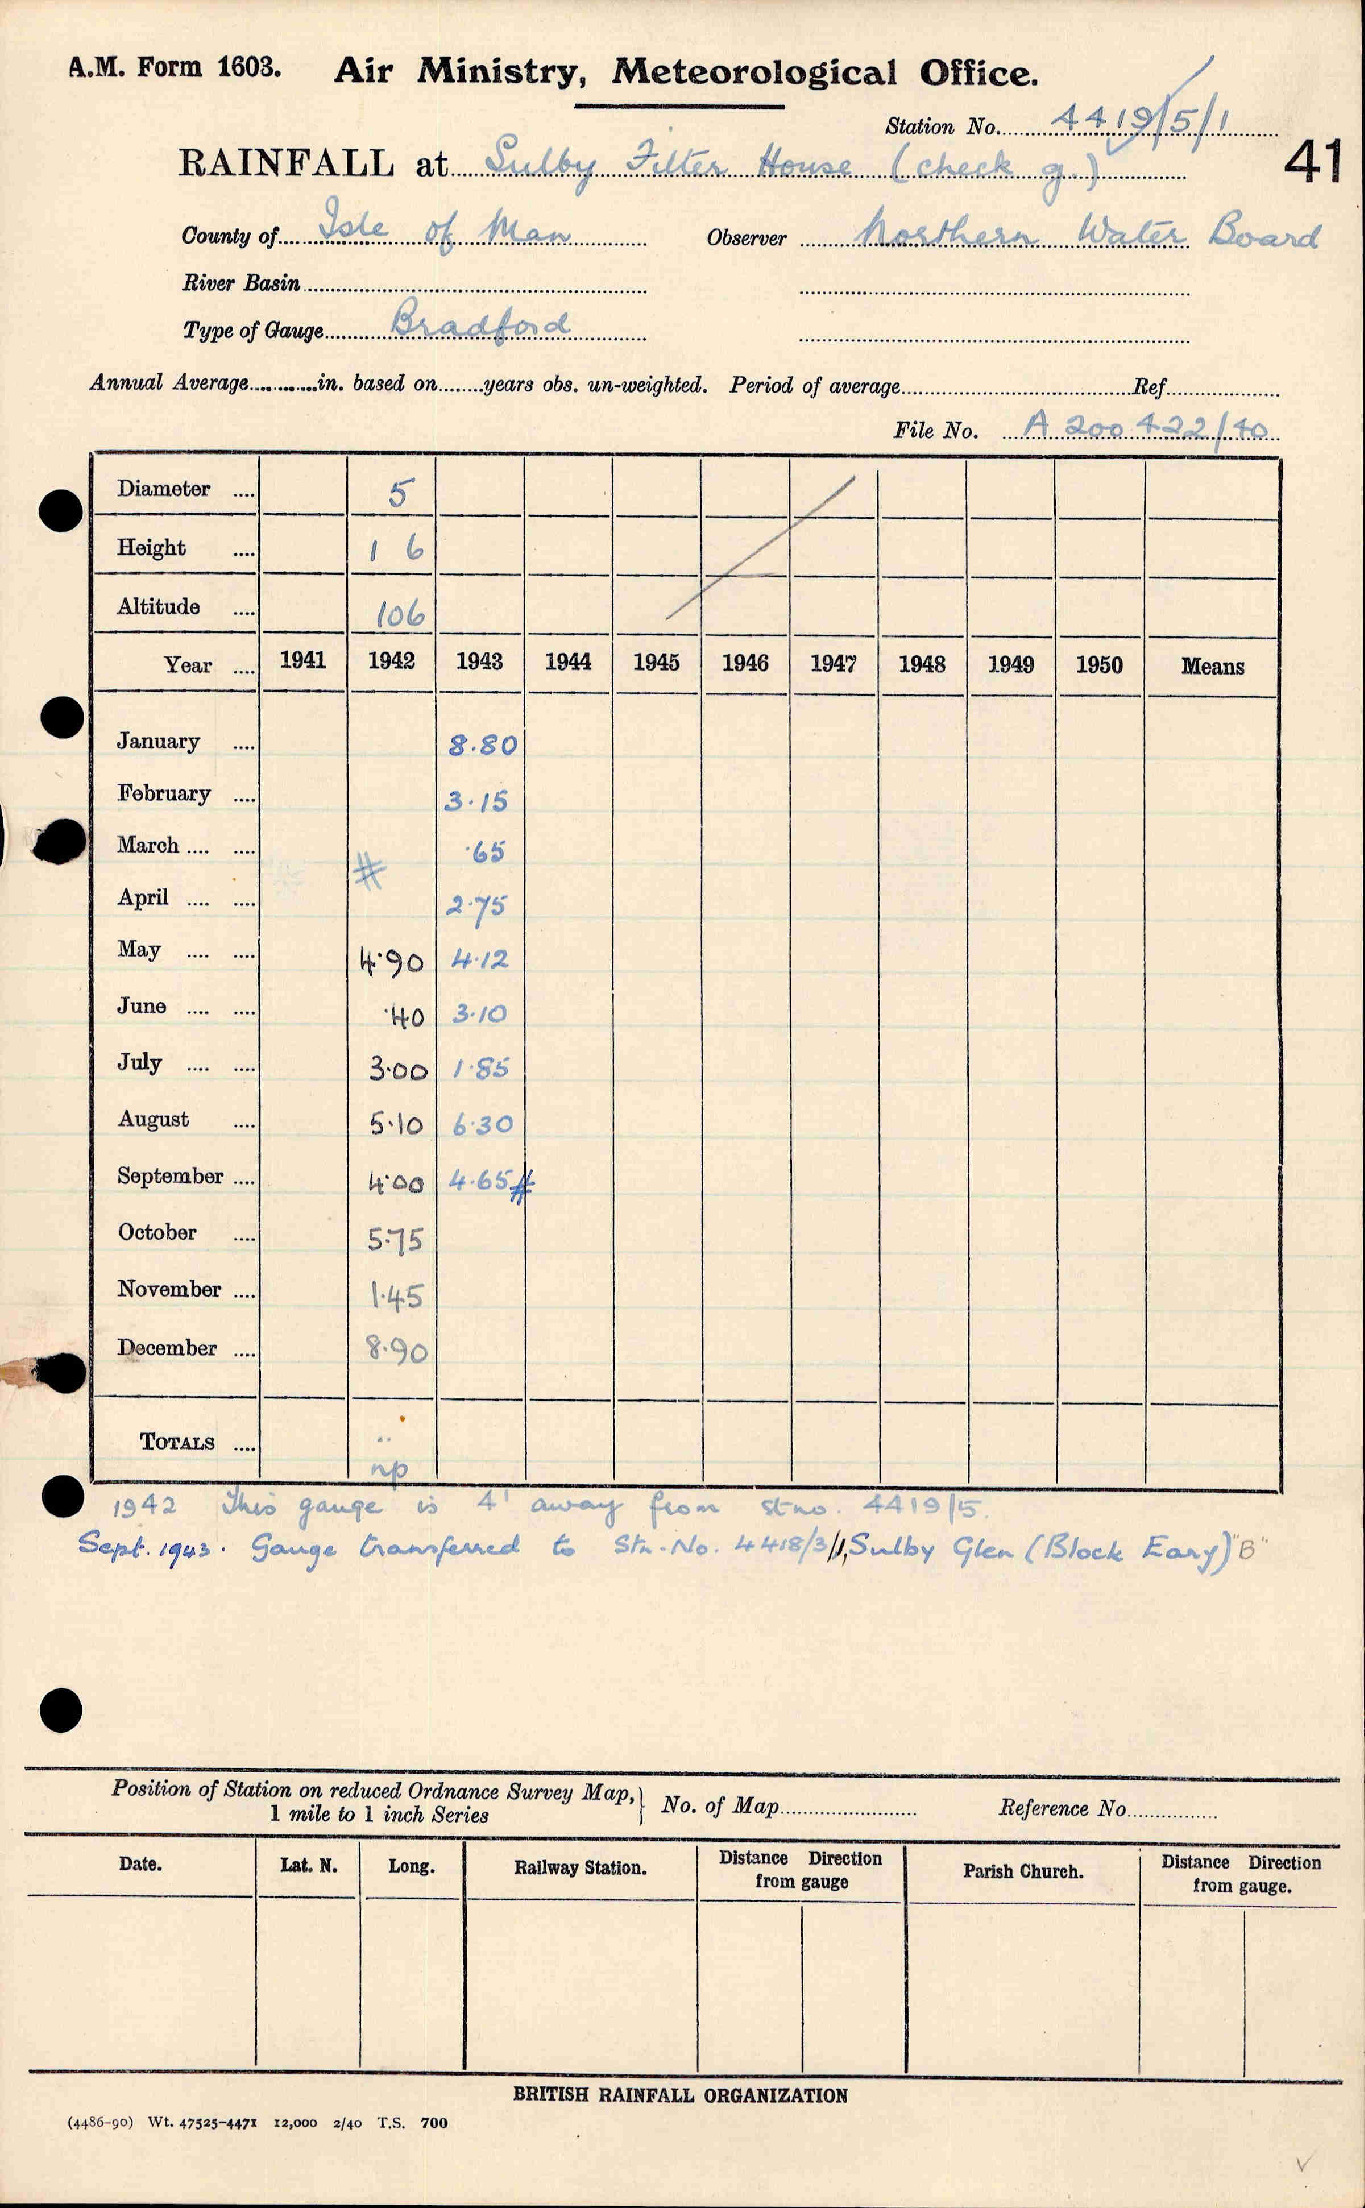 A.M. Form 1603. Air Ministry, Meteorological Office.
Station No. 4419/5/1
RAINFALL at Sulby Filter House (check g.) 41
County of Isle of Man Observer Northern Water Board
River Basin
Type of Gauge Bradford
Annual Average in. based on years obs. un-weighted. Period of average Ref
File No. A 200 422/40
Diameter .... 5
Height .... 1 6
Altitude .... 106
Year .... 1941 1942 1943 1944 1945 1946 1947 1948 1949 1950 Means
January .... 8.80
February .... 3.15
March .... .... # .65
April .... .... 2.75
May .... .... 4.90 4.12
June .... .... .40 3.10
July .... .... 3.00 1.85
August .... 5.10 6.30
September .... 4.00 4.65 #
October .... 5.75
November .... 1.45
December .... 8.90
TOTALS .... ..
np
1942 This gauge is 4' away from st. no. 4419/5.
Sept. 1943. Gauge transferred to Stn. No. 4418/3/1, Sulby Glen (Block Eary) "B"
Position of Station on reduced Ordnance Survey Map, } No. of Map Reference No
1 mile to 1 inch Series
Date. Lat. N. Long. Railway Station. Distance Direction from gauge Parish Church. Distance Direction from gauge.
BRITISH RAINFALL ORGANIZATION
(4486-90) Wt. 47525-4471 12,000 2/40 T.S. 700